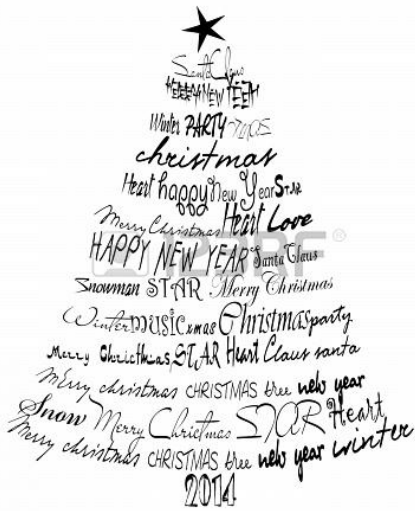 Santa Claus
NEW
Winter PARTY
christmas
Heart happy New Year STAR
Merry Christmas Heart Love
HAPPY NEW YEAR Santa Claus
Snowman STAR Merry Christmas
Winter music xmas Christmas party
Merry Chricthmas, STAR Heart Claus santa
Merry christmas CHRISTMAS tree new year
Snow Merry Chricthmas STAR Heart
Merry christmas CHRISTMAS tree new year winter
2014
123RF